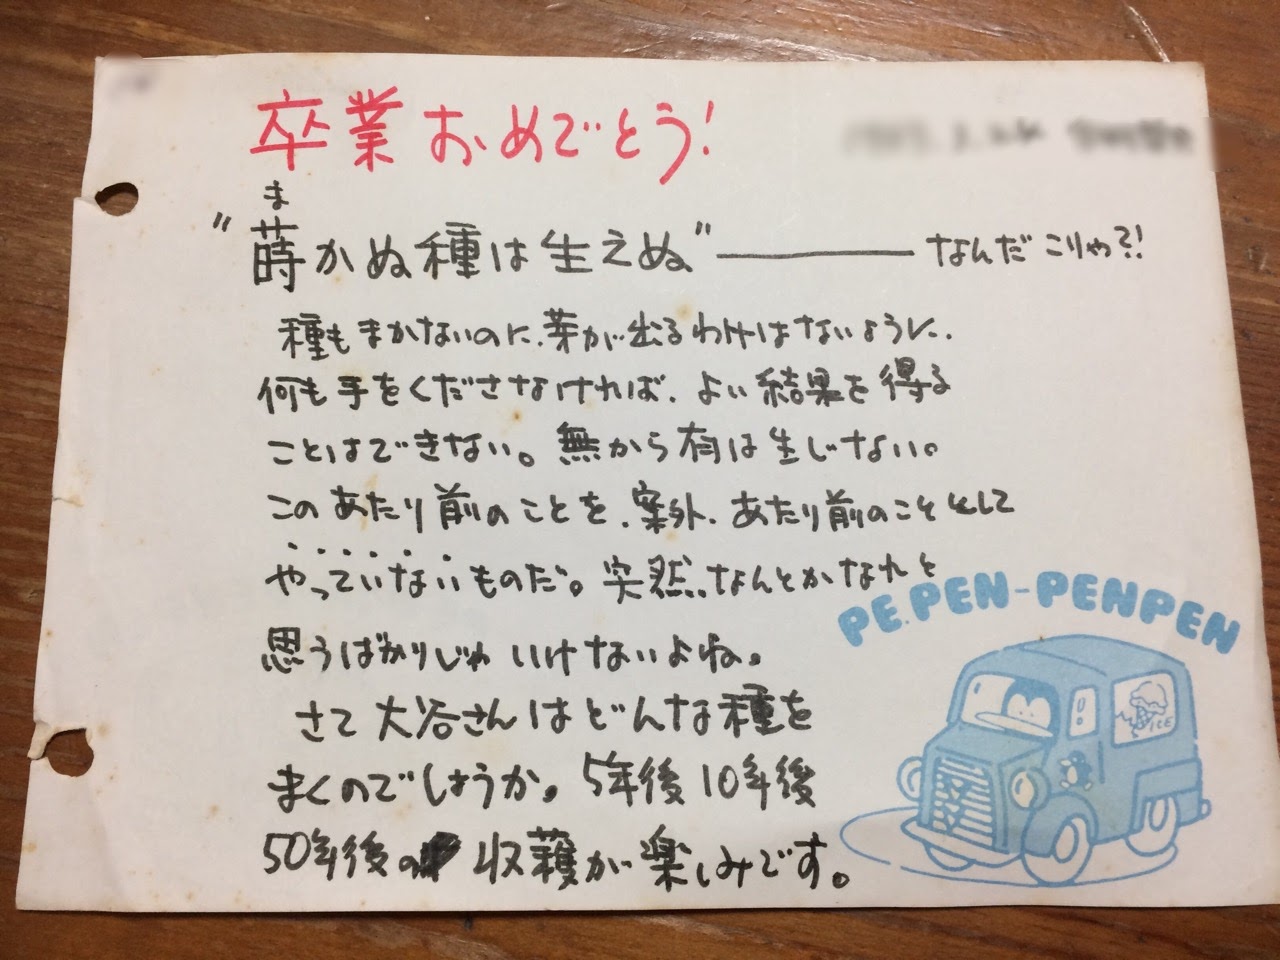 卒業おめでとう!
ま
"蒔かぬ種は生えぬ"――なんだこりゃ?!
種もまかないのに、芽が出るわけはないように、
何も手をくださなければ、よい結果を得る
ことはできない。無から有は生じない。
このあたり前のことを、案外、あたり前のこととして
やっていないものだ。突然、なんとかなれと
思うばかりじゃいけないよね。
さて大谷さんはどんな種を
まくのでしょうか。5年後10年後
50年後の収穫が楽しみです。
PE.PEN-PENPEN
ICE